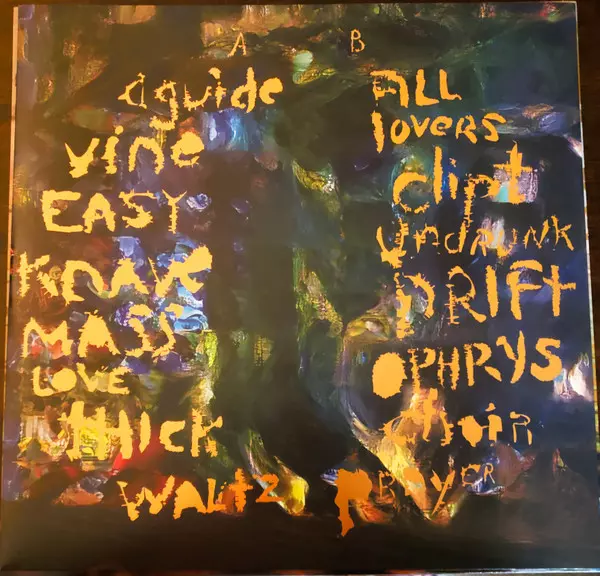 A
aguide
vine
EASY
Knave
MASS
LOVE
THICK
WALtz
B
ALL
lovERS
clipt
UndRUNK
DRIFt
OPHRYS
choir
BAYER